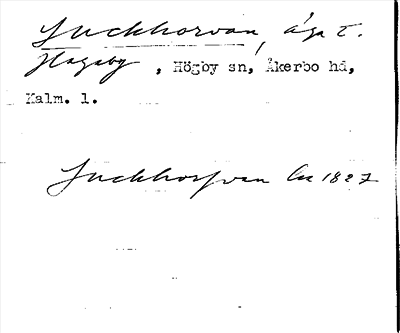 Suckhorvan, äga t.
Hagaby, Högby sn, Åkerbo hd,
Kalm. l.
Suckhorfvan Ls 1827